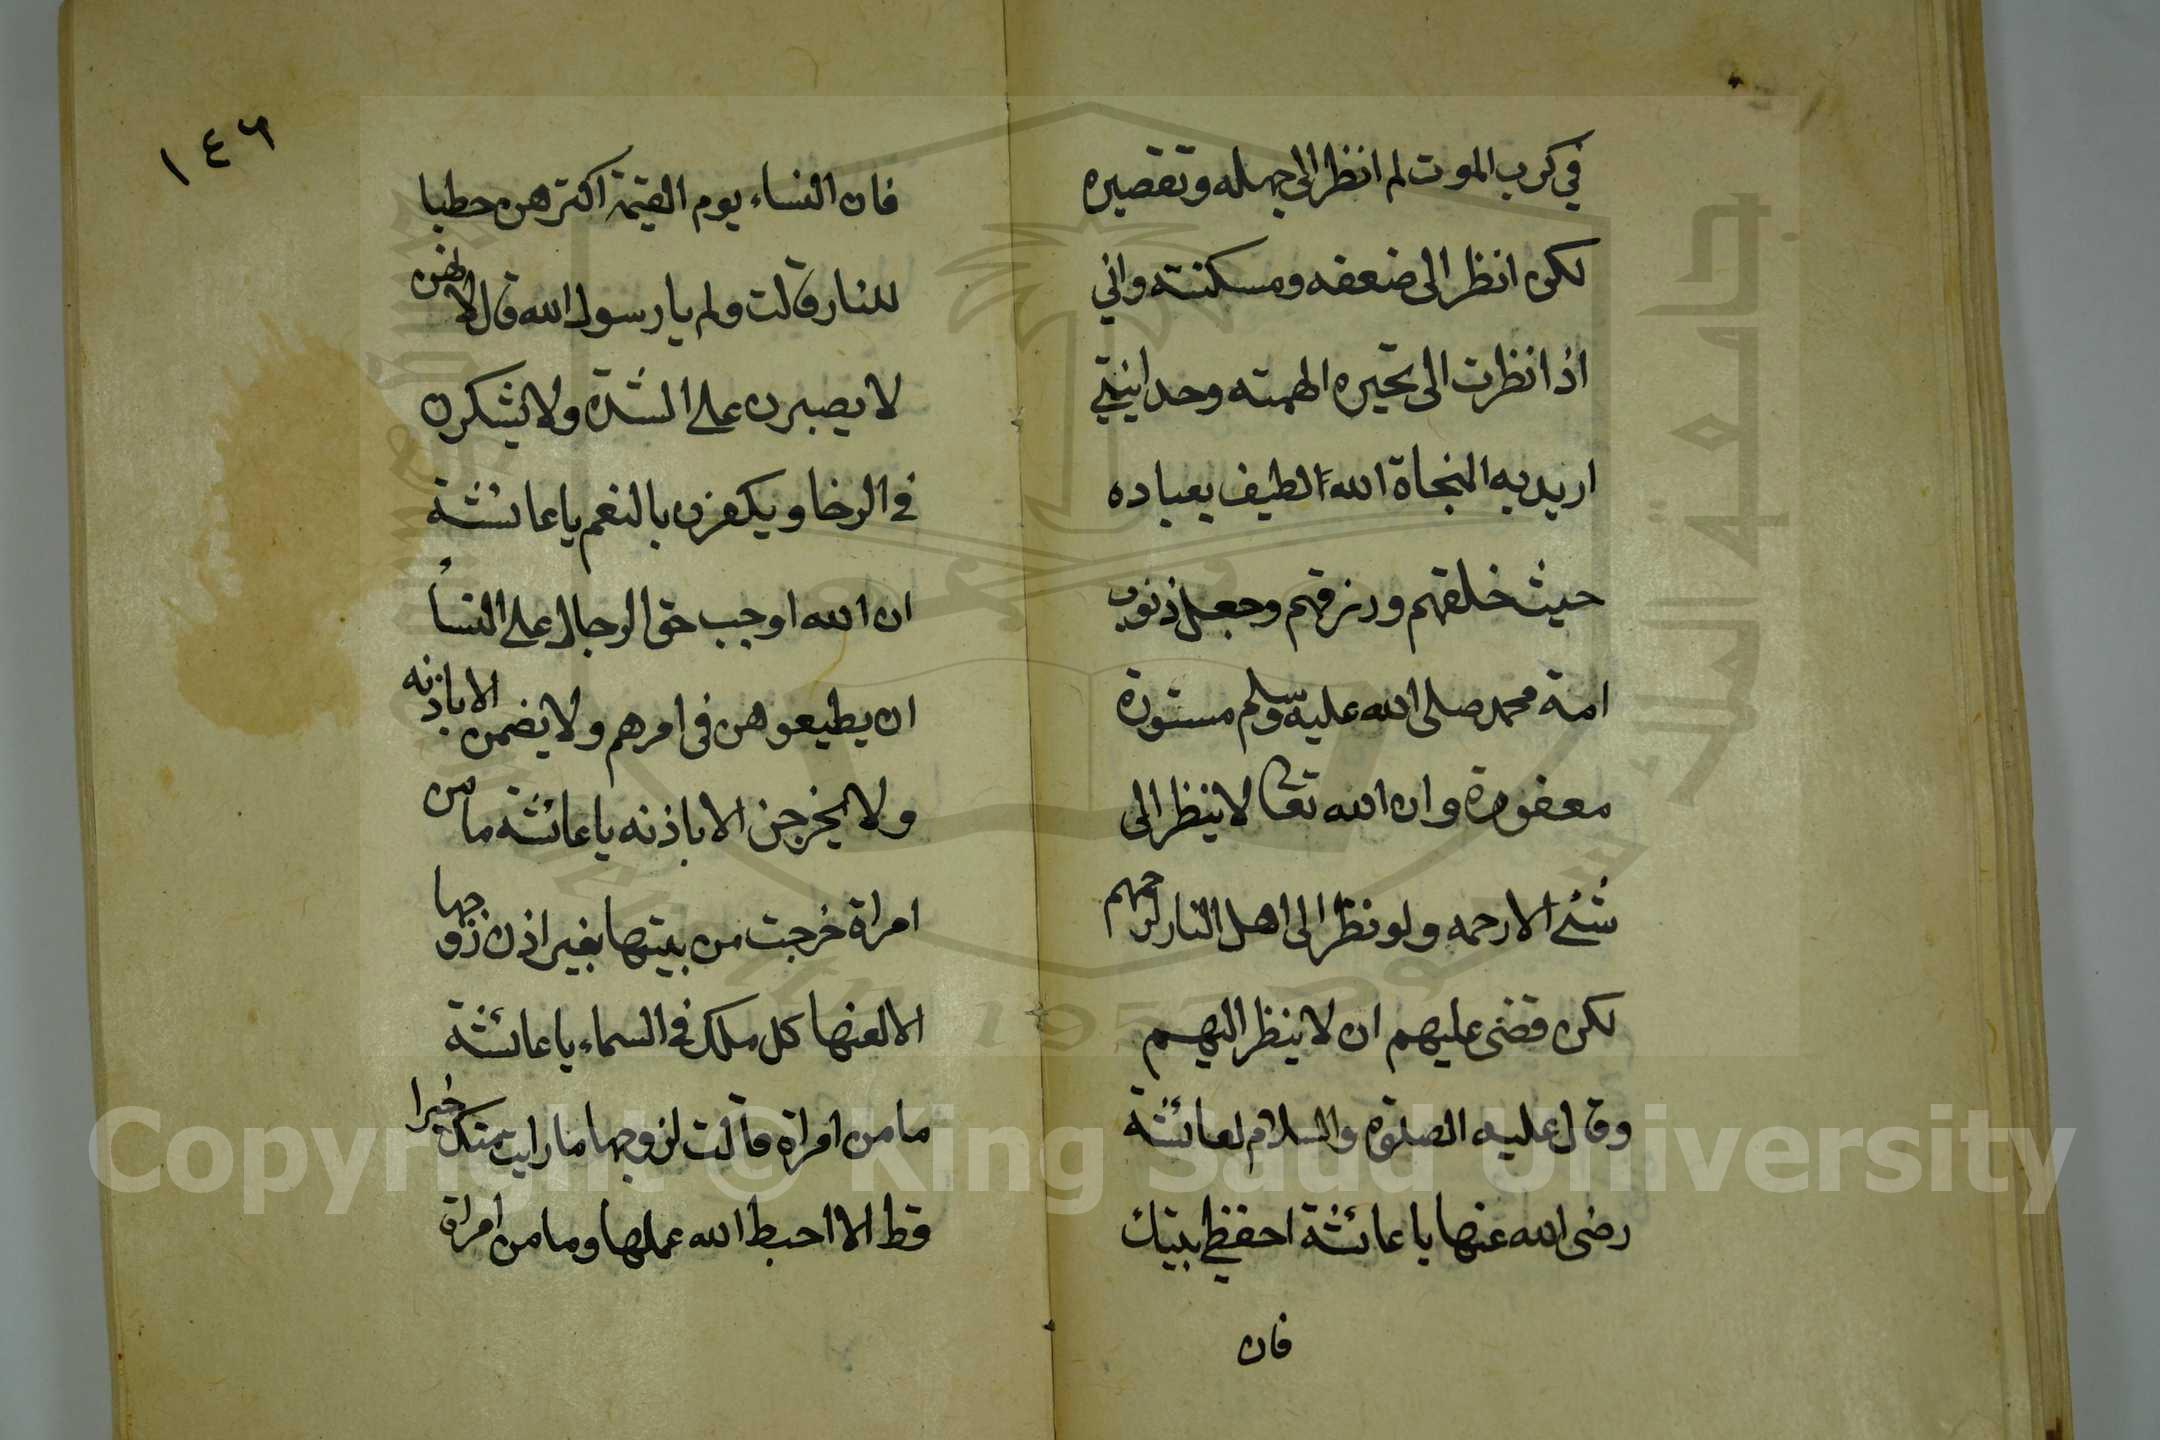 في كرب الموت لم انظر الى جهله وتقصيره
لكن انظر الى ضعفه ومسكنته واني
اذا نظرت الى تحيره الهمته وحدانيتي
اريد به النجاة الله الطيف بعباده
حيث خلقهم ورزقهم وجعل ذنوب
امة محمد صلى الله عليه وسلم مستورة
مغفورة وان الله تعا لا ينظر الى
شئ الا رحمه ولو نظر الى اهل النار لرحمهم
لكن قضى عليهم ان لا ينظر اليهم
وقال عليه الصلوة والسلام لعائشة
رضى الله عنها يا عائشة احفظي بيتك
فان
١٤٦
فان النساء يوم القيمة اكثرهن حطبا
للنار قالت ولم يا رسول الله قال لانهن
لا يصبرن على الشدة ولا يشكرن
في الرخا ويكفرن بالنعم يا عائشة
ان الله اوجب حق الرجال على النسا
ان يطيعوهن في امرهم ولا يضمن الا باذنه
ولا يخرجن الا باذنه يا عائشة ما من
امراة خرجت من بيتها بغير اذن زوجها
الا لعنها كل ملك في السماء يا عائشة
ما من امراة قالت لزوجها ما رايت منك خيرا
قط الا احبط الله عملها وما من امراة
Copyright © King Saud University